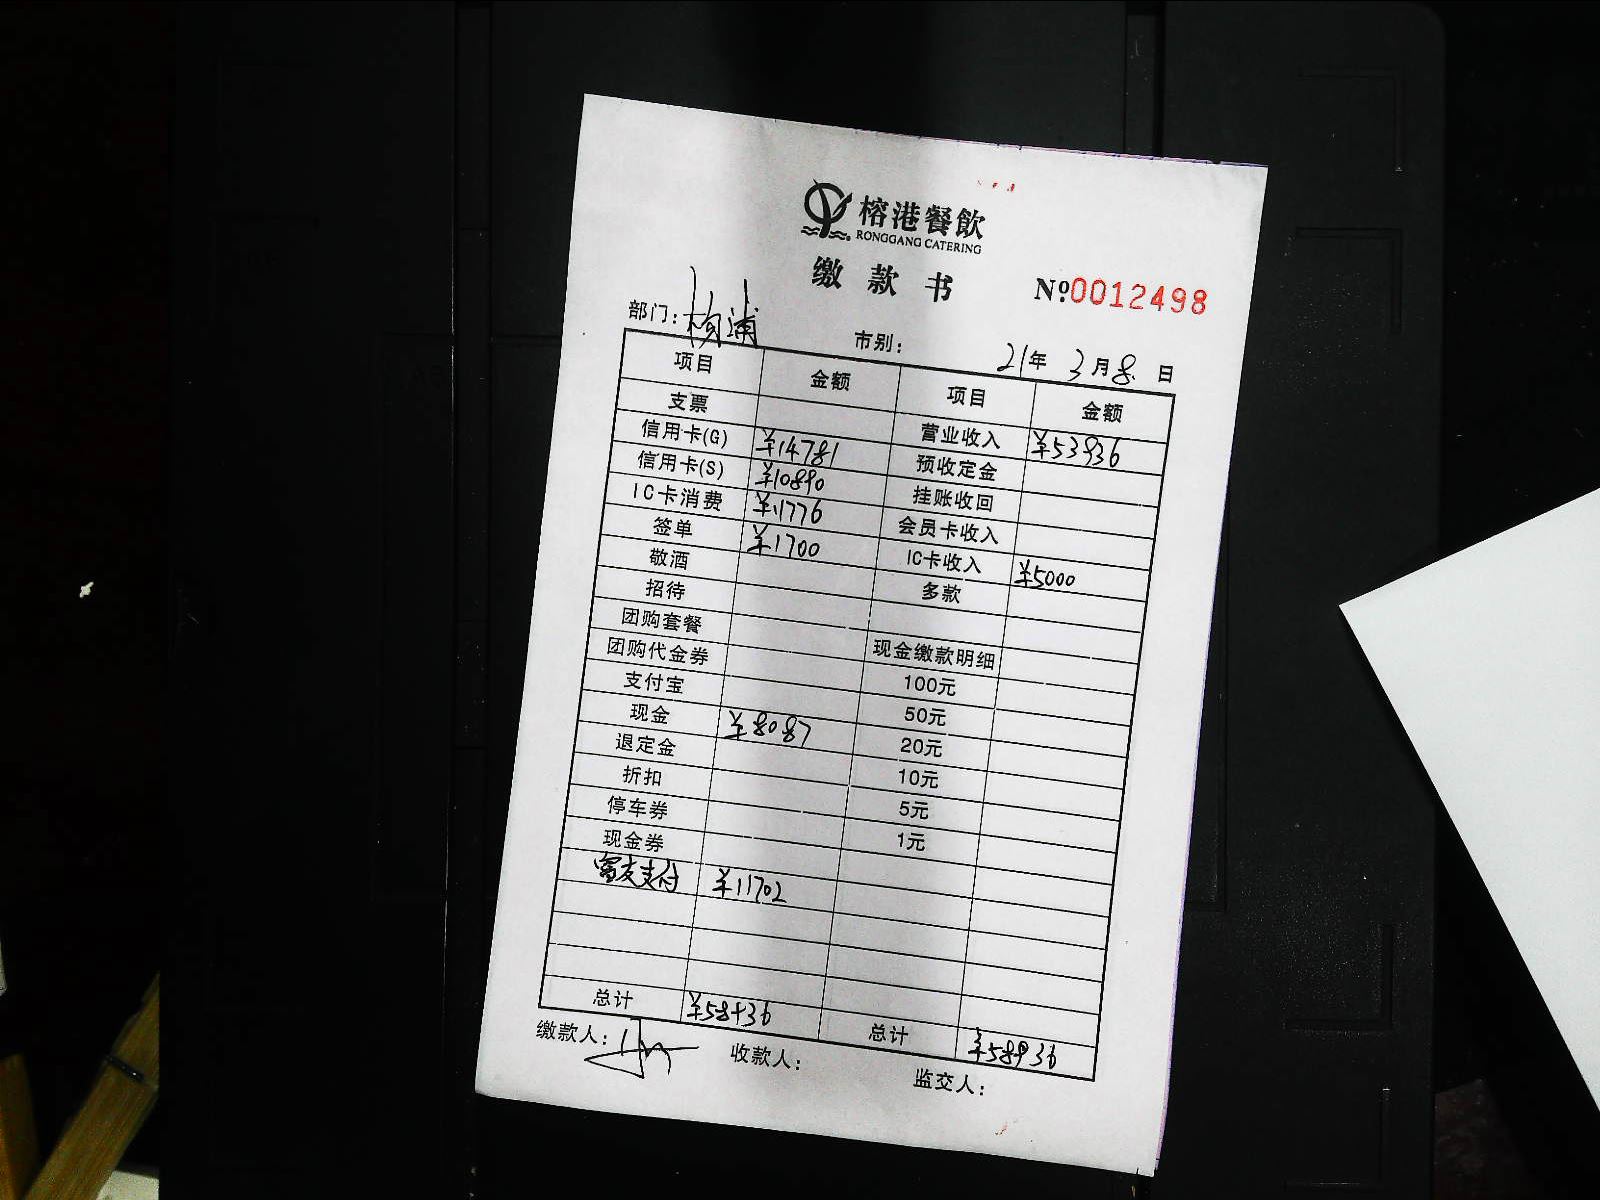 榕港餐飲
RONGGANG CATERING
缴款书
Nº0012498
部门：杨浦 市别： 21年 3月8日
项目 金额 项目 金额
支票 营业收入 ¥53936
信用卡(G) ¥14781 预收定金
信用卡(S) ¥10890 挂账收回
IC卡消费 ¥11776 会员卡收入
签单 ¥1700 IC卡收入 ¥5000
敬酒 多款
招待
团购套餐 现金缴款明细
团购代金券 100元
支付宝 50元
现金 ¥8087 20元
退定金 10元
折扣 5元
停车券 1元
现金券
富友支付 ¥11702
总计 ¥58936 总计 ¥58936
缴款人： 收款人： 监交人：